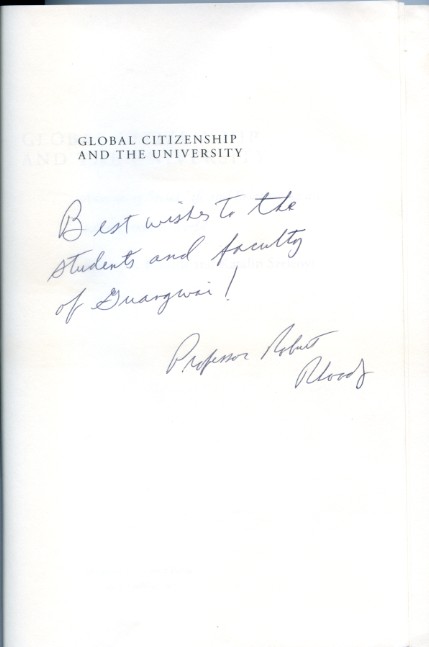 GLOBAL CITIZENSHIP
AND THE UNIVERSITY
Best wishes to the
students and faculty
of Guangwai!
Professor Robert
Rhoads